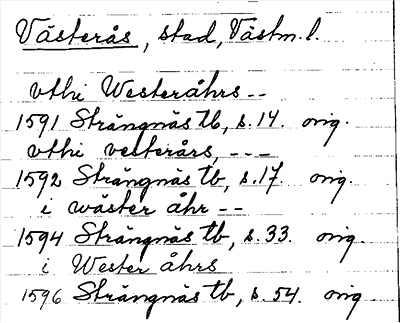 Västerås, stad, Västm. l.
vthi Westeråhrs --
1591 Strängnäs tb, s. 14. orig.
vthi vesterårs, ---
1592 Strängnäs tb, s. 17. orig.
i wäster åhr --
1594 Strängnäs tb, s. 33. orig.
i Wester åhrs
1596 Strängnäs tb, s. 54. orig